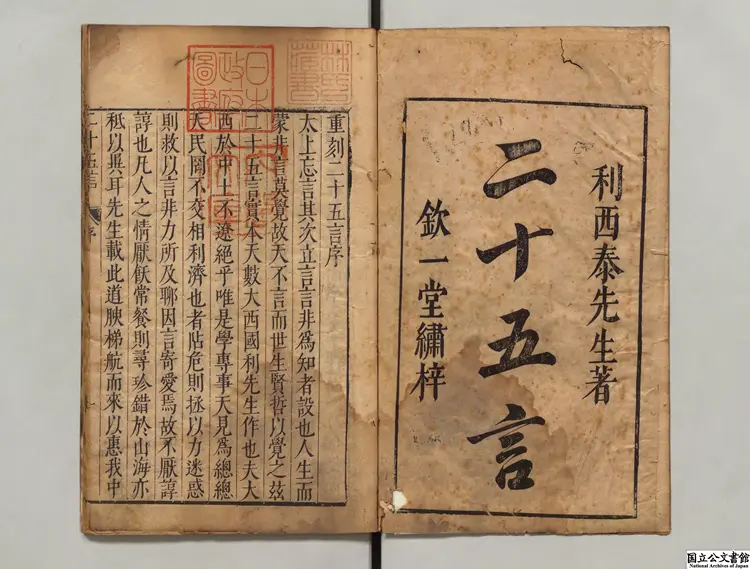 利西泰先生著
二十五言
欽一堂繡梓
重刻二十五言序
太上忘言其次立言言非爲知者設也人生而
蒙非言莫覺故天不言而世生賢哲以覺之茲
二十五言實本天數大西國利先生作也夫大
西於中土不遼絕乎唯是學專事天見爲總總
人民罔不交相利濟也者阽危則拯以力迷惑
則救以言非力所及聊因言寄愛焉故不厭諄
諄也凡人之情厭飫常餐則尋珍錯於山海亦
秪以異耳先生載此道腴梯航而來以惠我中
二十五言
序
日本
政府
圖書
林氏
藏書
国立公文書館
National Archives of Japan